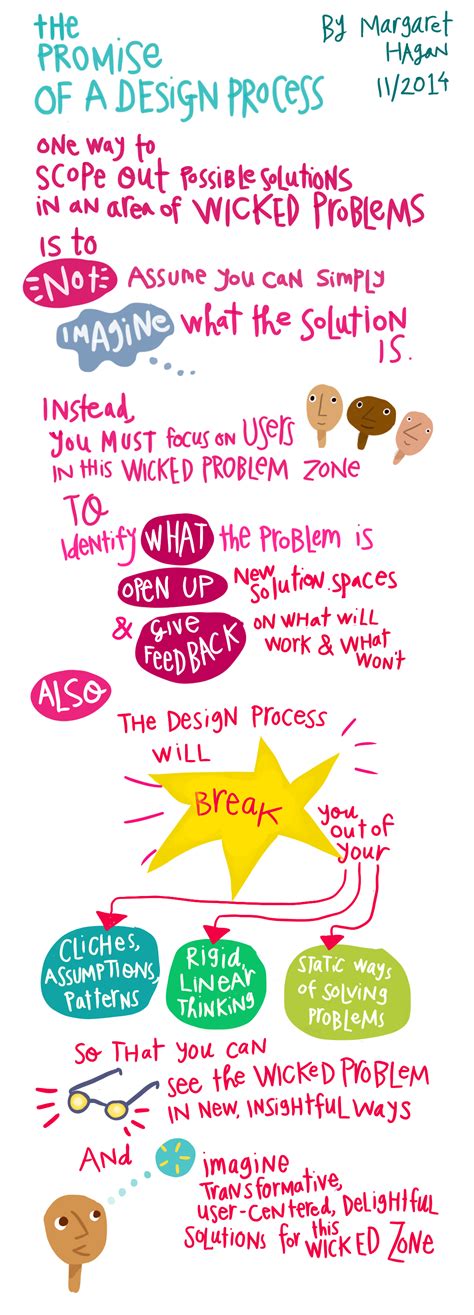 the
PROMISE
OF A DESIGN PROCESS
By MARGARET
HAGAN
11/2014
ONE WAY to
SCOPE OUT POSSIBLE SOLUTIONS
IN AN AREA OF WICKED PROBLEMS
IS to
NOT ASSUME YOU CAN SIMPLY
IMAGINE WHAT tHE SOLUTION
IS.
INSTEAD,
YOU MUST FOCUS ON USERS
IN tHIS WICKED PROBLEM ZONE
TO
Identify WHAT tHE PROBLEM IS
OPEN UP NEW
SOLUTION SPACES
& GIVE
FEEDBACK ON WHAT WILL
WORK & WHAT
WON'T
ALSO
THE DESIGN PROCESS
WILL
BREAK you
out of
your
CLICHES,
ASSUMPTIONS,
PATTERNS
RIGID,
LINEAR
THINKING
STATIC WAYS
OF SOLVING
PROBLEMS
SO THAT YOU CAN
SEE tHE WICKED PROBLEM
IN NEW, INSIGHTFUL WAYS
AND
imagine
TRANSFORMATIVE,
USER-CENTERED, DELIGHTFUL
SOLUTIONS for this
WICKED ZONE